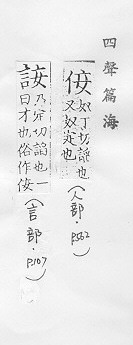 四聲篇海
佞奴丁切諂也
又奴定也(人部·P562)
𧧏乃定切諂也一
曰才也俗作佞(言部·P107)